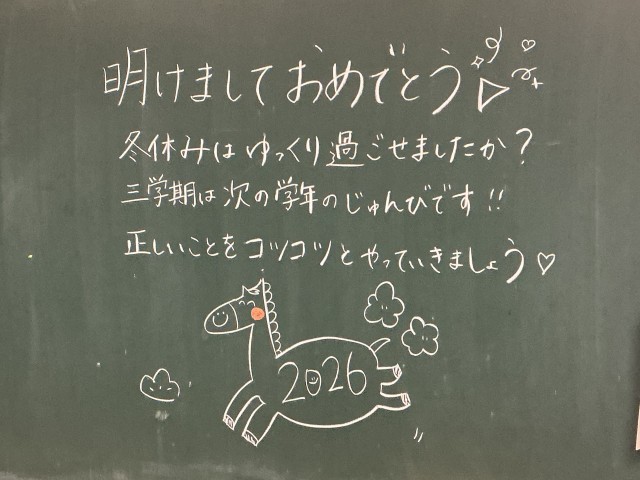 明けましておめでとう
冬休みはゆっくり過ごせましたか?
三学期は次の学年のじゅんびです!!
正しいことをコツコツとやっていきましょう♡
2026